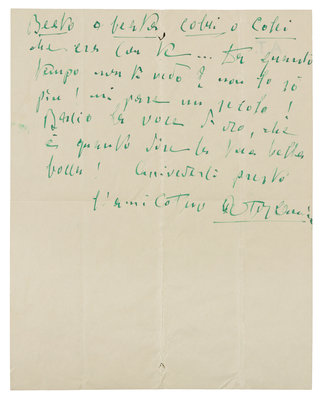 Beato o beata, colui o colei
che era con te ... Da quanto
tempo non ti vedo? non lo so
più! mi pare un secolo!
Bacio la voce di oro, che
è quanto dire la tua bella
bocca! Arrivederti presto
l'amico tuo